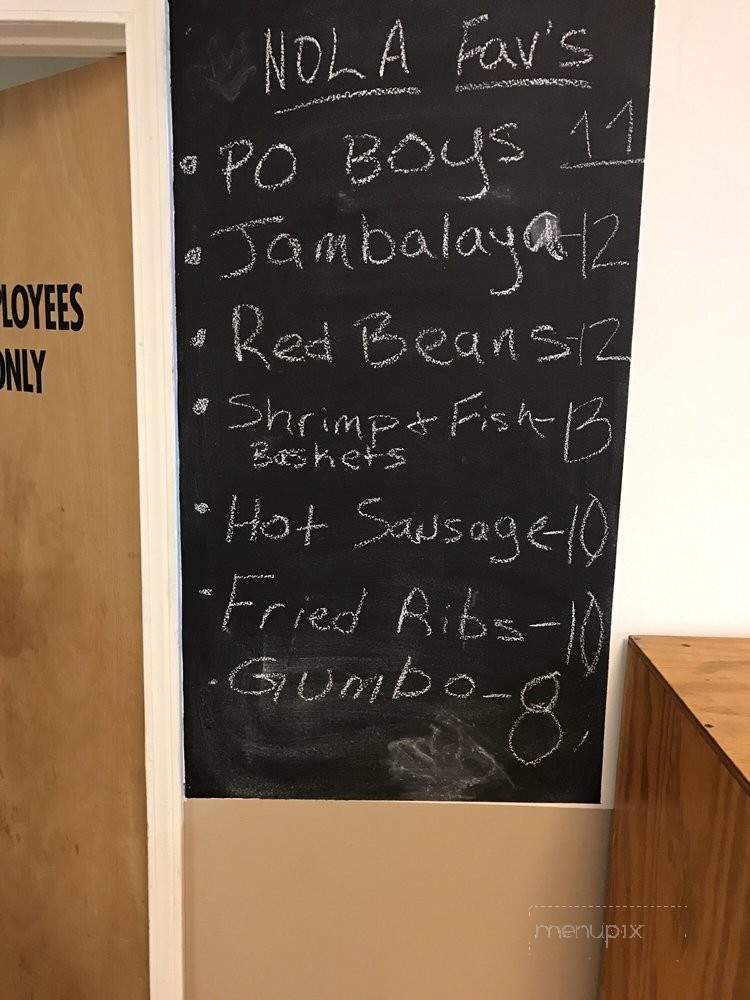 NOLA Fav's
• PO BOYS 11
• Jambalaya-12
• Red Beans-12
• Shrimp & Fish-13
Baskets
• Hot Sausage-10
• Fried Ribs-10
• Gumbo-8
LOYEES
ONLY
menupix